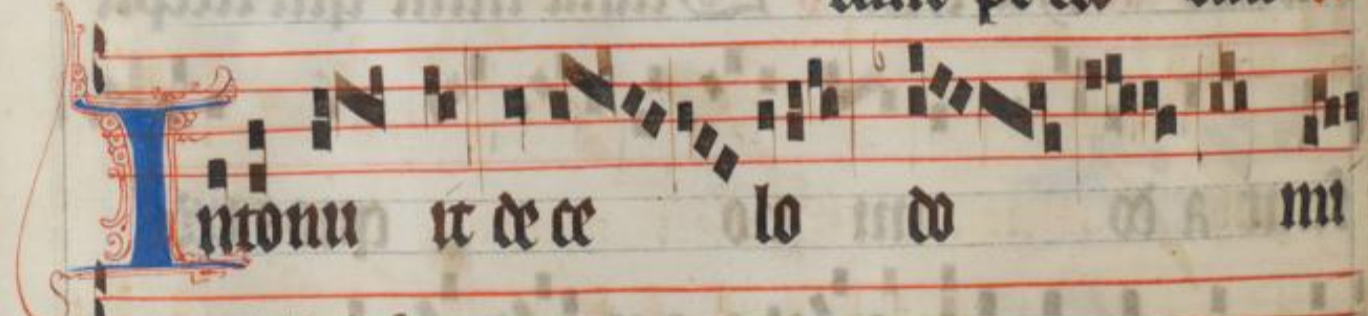 Intonu it de ce lo do mi